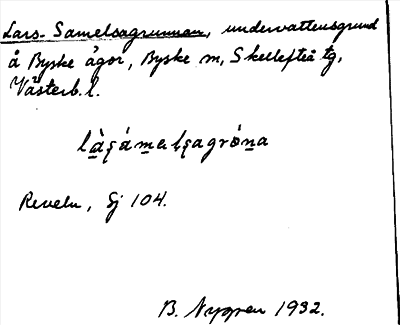 Lars-Samelsagrunnan, undervattensgrund
å Byske ägor, Byske sn, Skellefteå tg,
Västerb. l.
Reveln, Sj 104.
B. Nygren 1932.